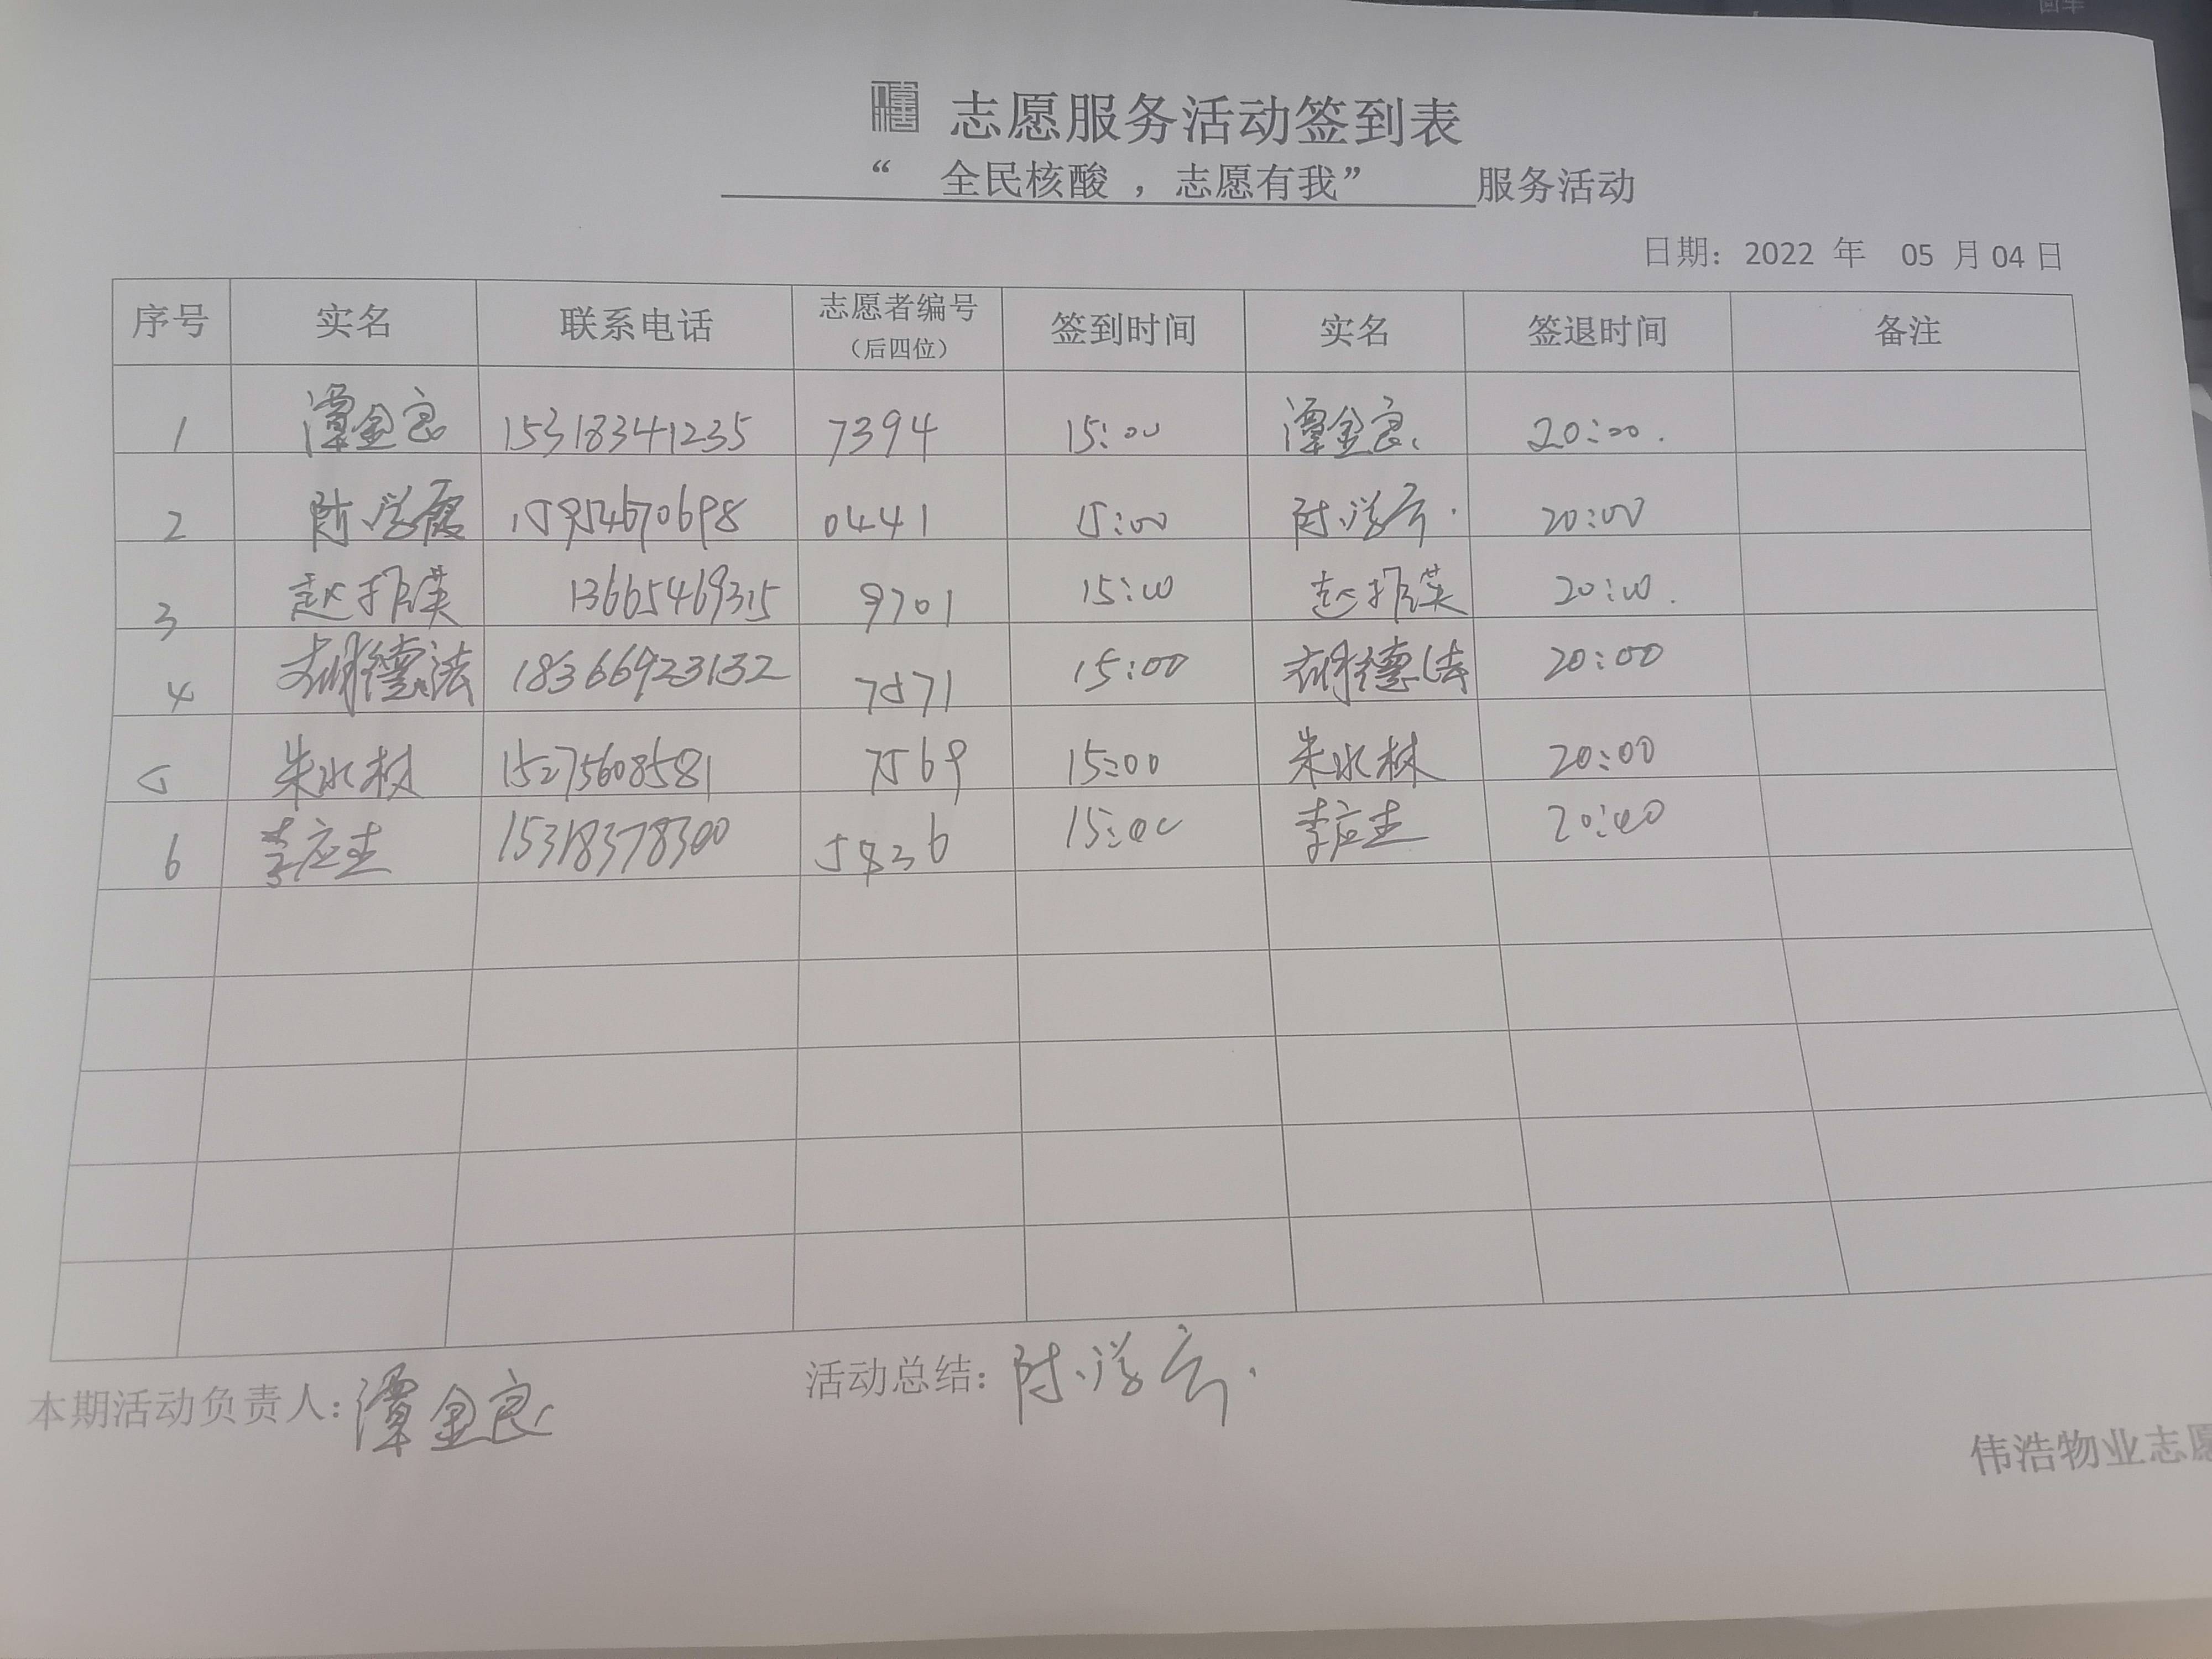 志愿服务活动签到表
“ 全民核酸 ，志愿有我” 服务活动
日期：2022 年 05 月 04 日
序号 实名 联系电话 志愿者编号（后四位） 签到时间 实名 签退时间 备注
1 潭金良 15318341235 7394 15:00 潭金良 20:00.
2 陈学霞 15954670698 0441 15:00 陈学 20:00
3 赵振英 13665469315 9701 15:00 赵振英 20:00.
4 胡德法 18366923132 7571 15:00 胡德法 20:00
5 朱水林 15275608581 7569 15:00 朱水林 20:00
6 李应 15318378300 5836 15:00 李应 20:00
本期活动负责人：潭金良
活动总结：陈学
伟浩物业志愿